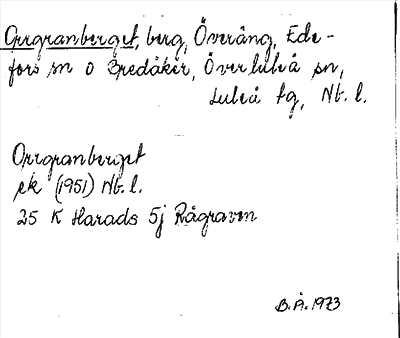 Orrgranberget, berg, Överäng, Ede-
fors sn o Bredåker, Överluleå sn,
Luleå tg, Nb. l.
Orrgranberget
ek (1951) Nb. l.
25 K Harads 5j Rågraven
B.Å. 1973